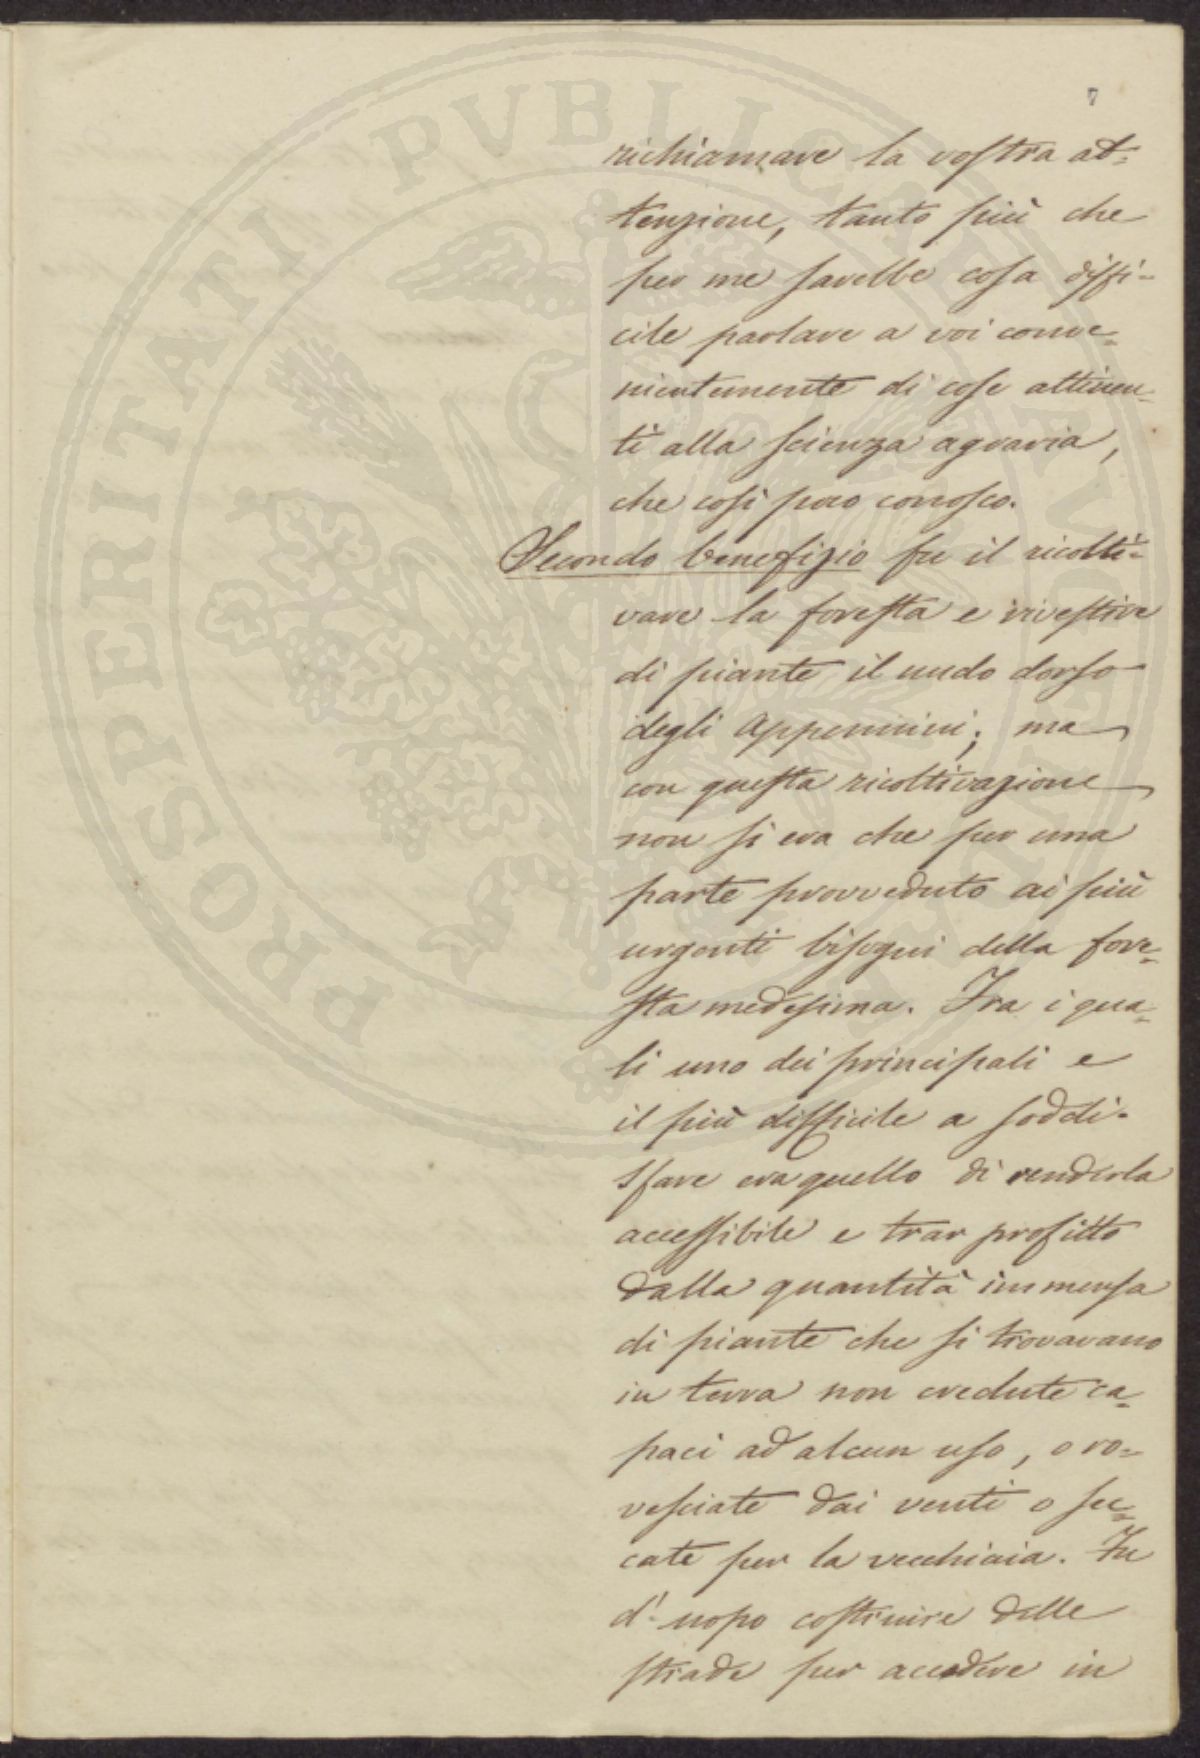 7
richiamare la vostra at-
tenzione, tanto più che
per me sarebbe cosa diffi-
cile parlare a voi conve-
nientemente di cose attinen-
ti alla scienza agraria,
che così poco conosco.
Secondo benefizio fu il ricolti-
vare la foresta e rivestire
di piante il nudo dorso
degli Appennini; ma
con questa ricoltivazione
non si era che per una
parte provveduto ai più
urgenti bisogni della fore-
sta medesima. Fra i qua-
li uno dei principali e
il più difficile a soddi-
sfare era quello di renderla
accessibile e trar profitto
dalla quantità immensa
di piante che si trovavano
in terra non credute ca-
paci ad alcun uso, o ro-
vesciate dai venti o sec-
cate per la vecchiaia. Fu
d'uopo costruire delle
strade per accedere in
PROSPERITATI PVBLICAE AVGENDAE